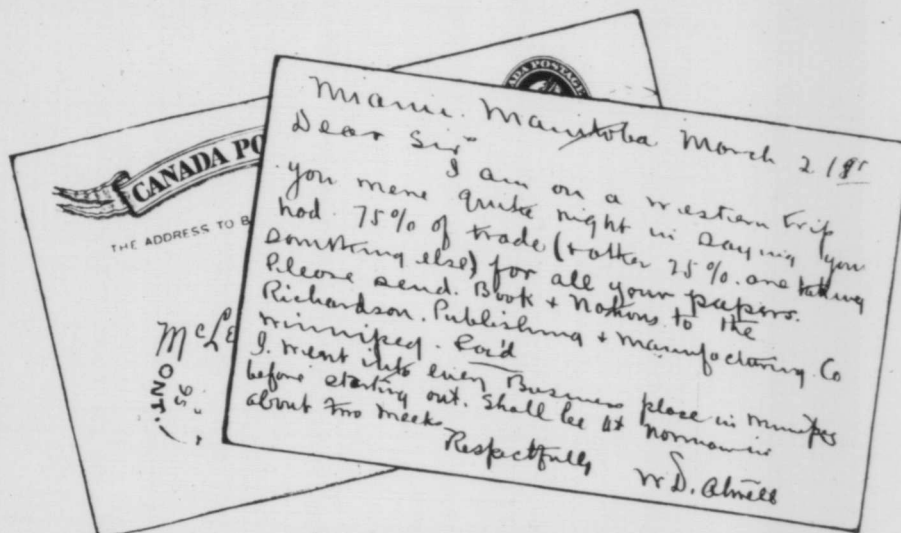 CANADA PO
ADA POSTAGE
THE ADDRESS TO B
McLe
ONT.
95
Miami. Manitoba March 2 / 95
Dear Sir
I am on a western trip
you were quite right in saying you
had 75% of trade (& other 25% are taking
something else) for all your papers.
Please send Book & Notions to the
Richardson. Publishing & Manufacturing. Co
Winnipeg.
I went into every Business place in Winnipeg
before starting out. Shall be at
about two weeks
Respectfully
W D.